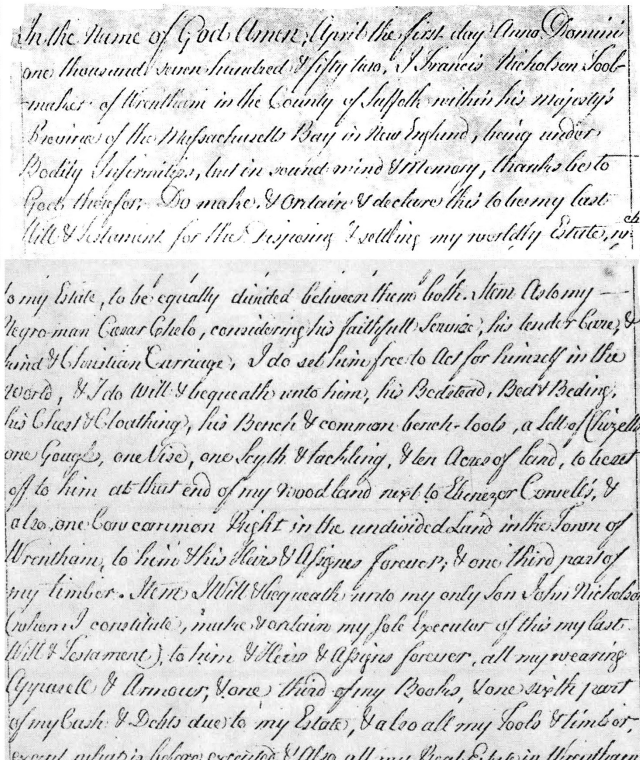 In the Name of God Amen, April the first day Anno Domini
one thousand seven hundred & fifty two, I Francis Nicholson Tool-
maker of Wrentham in the County of Suffolk within his majesty's
Province of the Massachusetts Bay in New England, being under
Bodily Infirmities, but in sound mind & Memory, thanks be to
God therefor. Do make & Ordain & declare this to be my last
Will & Testament for the Disposing & settling my worldly Estate,
to my Estate, to be equally divided between them both. Item As to my
Negro man Cesar Chelo, considering his faithfull Service, his tender Care, &
kind & Christian Carriage, I do set him free to Act for himself in the
World, & I do Will & bequeath unto him, his Bedstead, Bed & Beding,
his Chest & Cloathing, his Bench & common bench-tools, a Sett of Chizells
one Gouge, one Vise, one Scyth & tackling, & ten Acres of land, to be set
off to him at that end of my woodland next to Ebenezer Cowell's, &
also, one Cow common Right in the undivided Land in the Town of
Wrentham, to him & his Heirs & Assigns forever; & one third part of
my timber. Item I Will & bequeath unto my only Son John Nicholson
(whom I constitute, make & ordain my sole Executor of this my last
Will & Testament), to him & Heirs & Assigns forever, all my wearing
Apparell & Armour, & one third of my Books, & one sixth part
of my Cash & Debts due to my Estate, & also all my Tools & timber,
except what is before excepted & Also all my Real Estate in Wrentham